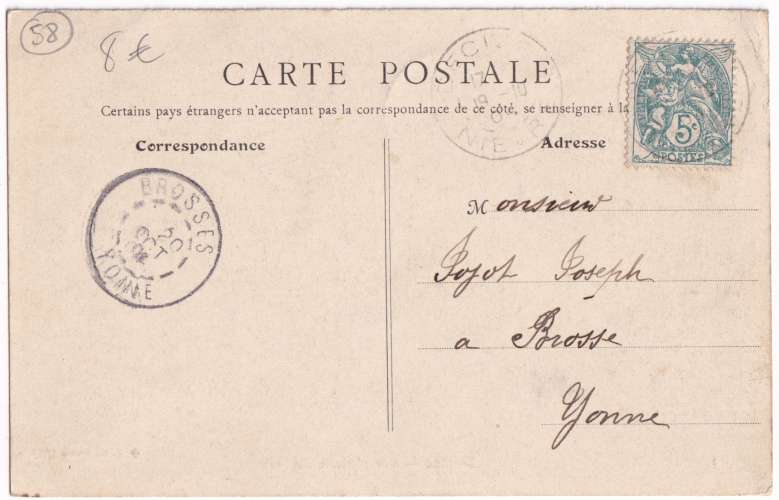 58
8 €
CARTE POSTALE
Certains pays étrangers n'acceptant pas la correspondance de ce côté, se renseigner à la
Correspondance
Adresse
5c
POSTES
BROSSES
20
OCT
YONNE
Monsieur
Joseph
a Brosse
Yonne